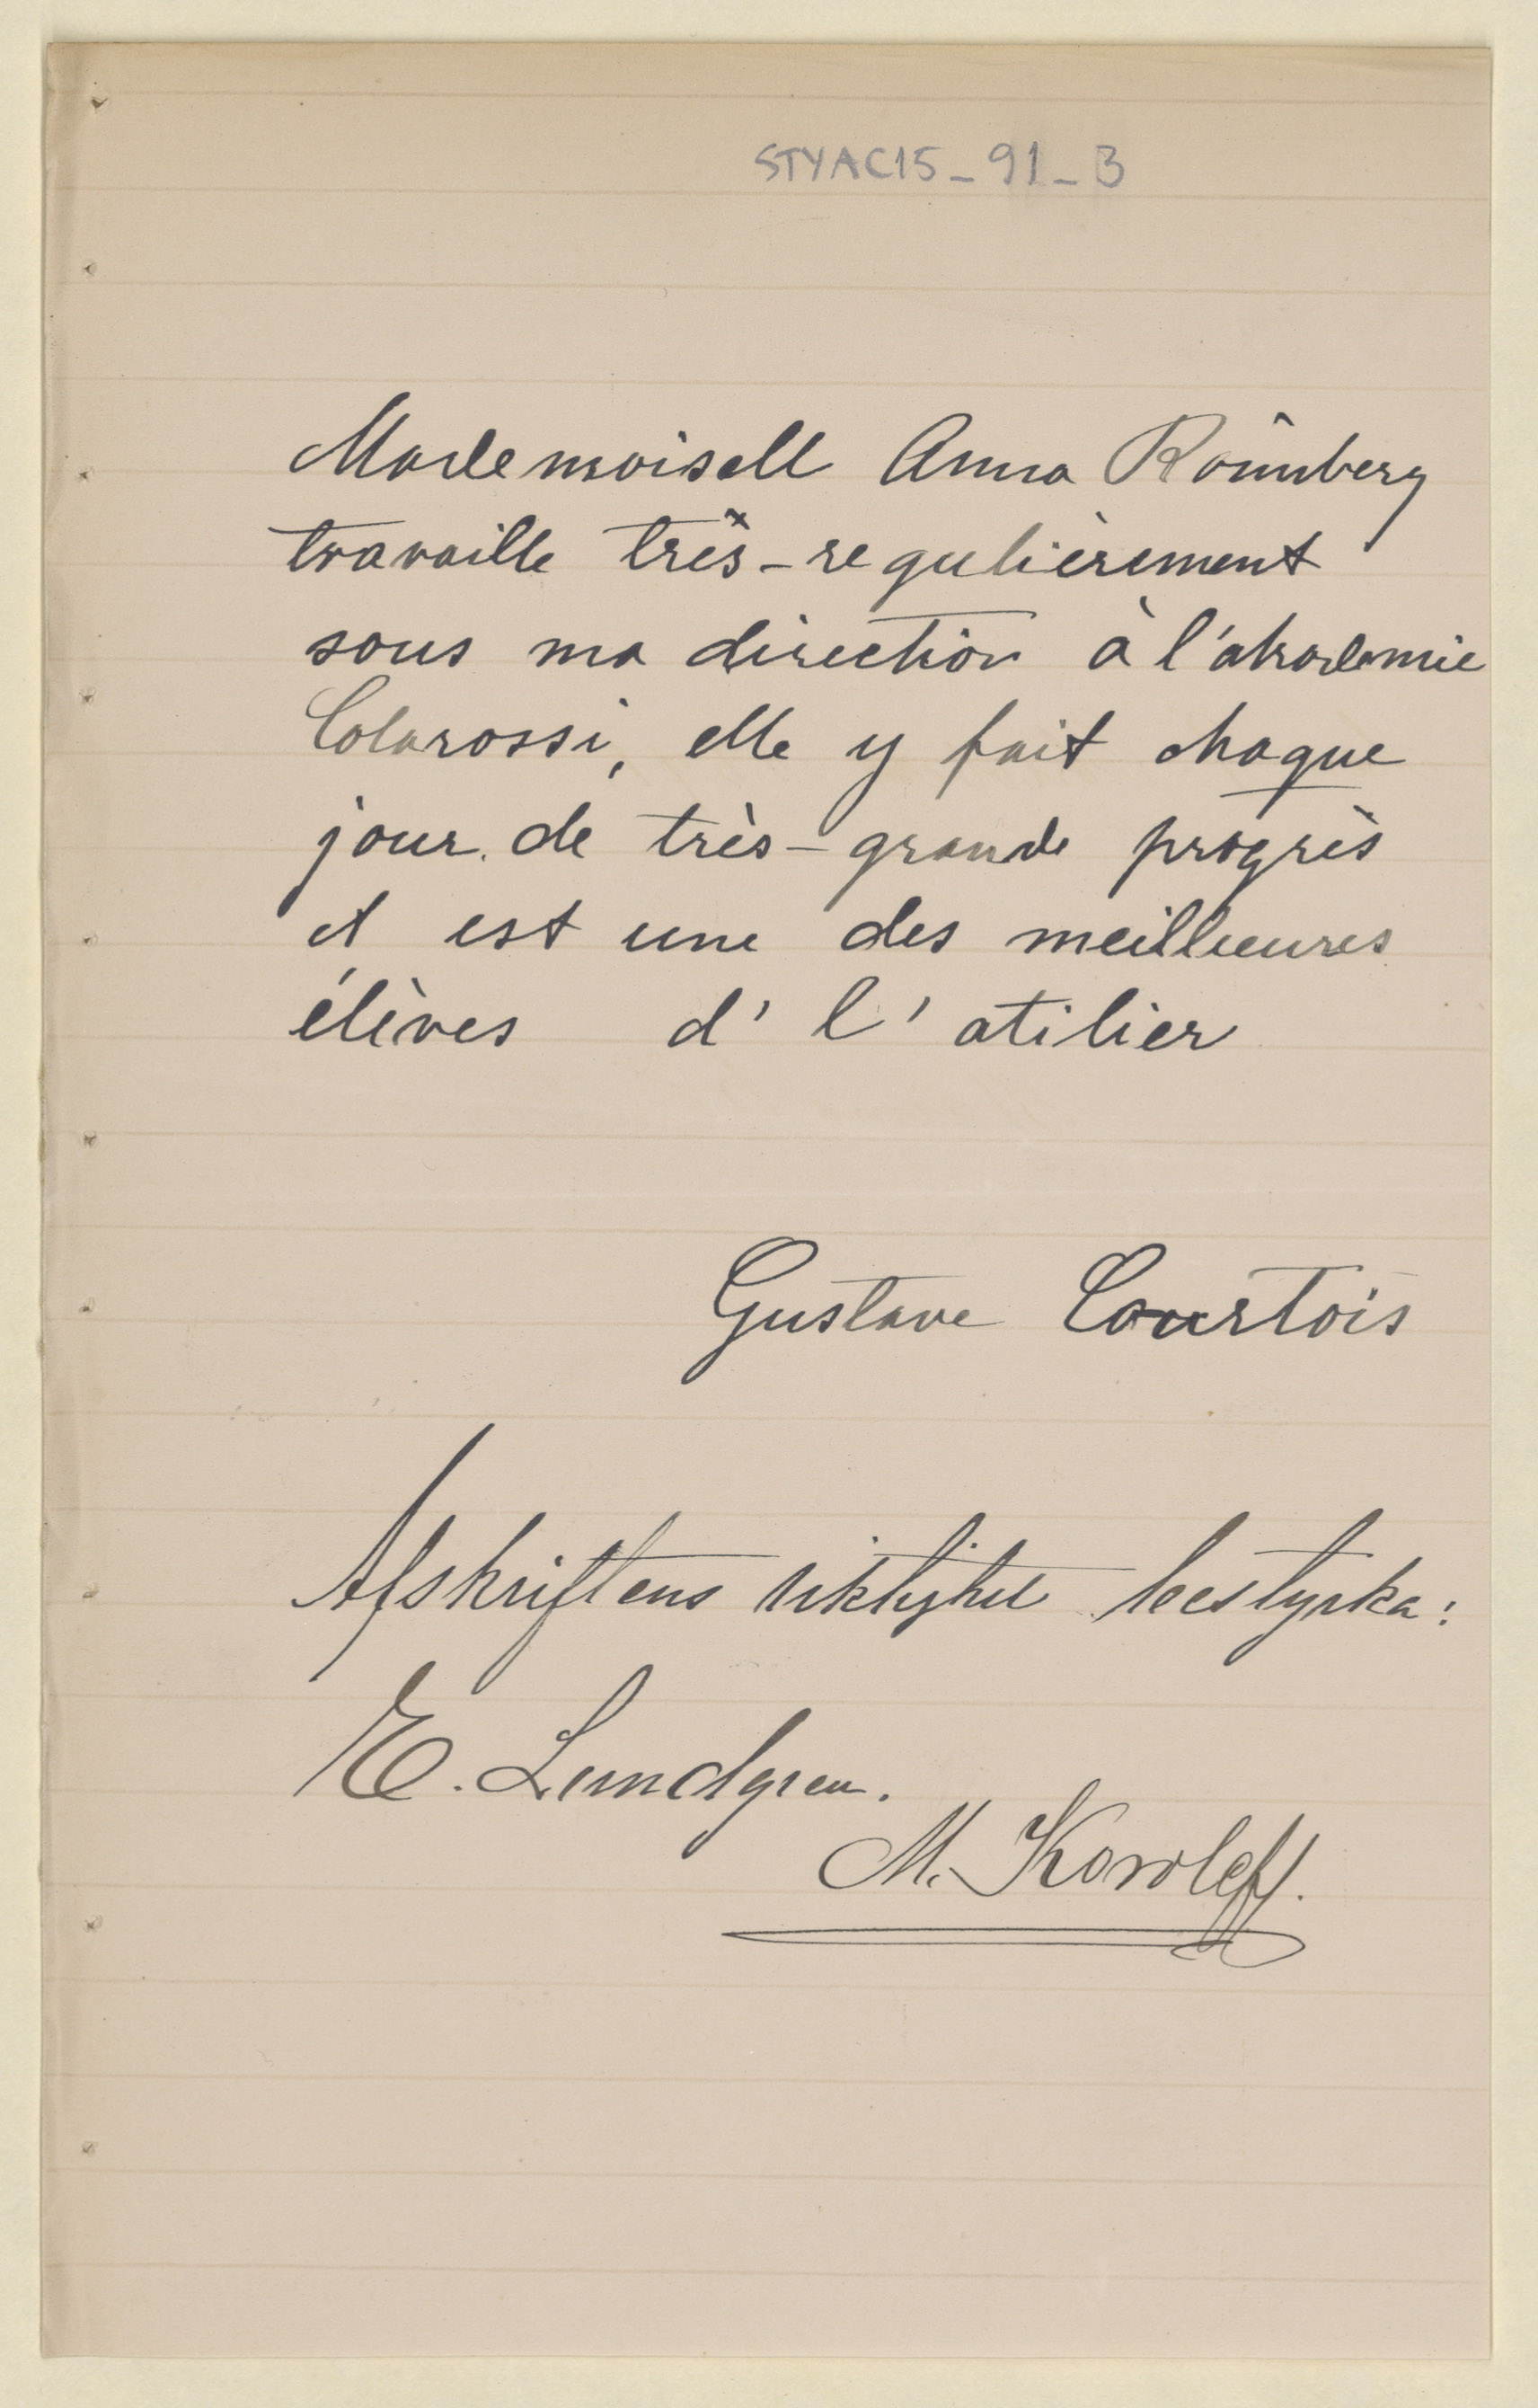 STYAC15_91_B
Mademoisell Anna Rönnberg
travaille très-regulièrement
sous ma direction à l'akademie
Colarossi, elle y fait chaque
jour de très-grande progrès
et est une des meilleures
élèves d' l' atilier
Gustave Courtois
Afskriftens riktighet bestyrka:
E. Lundgren.
M. Kowleff.